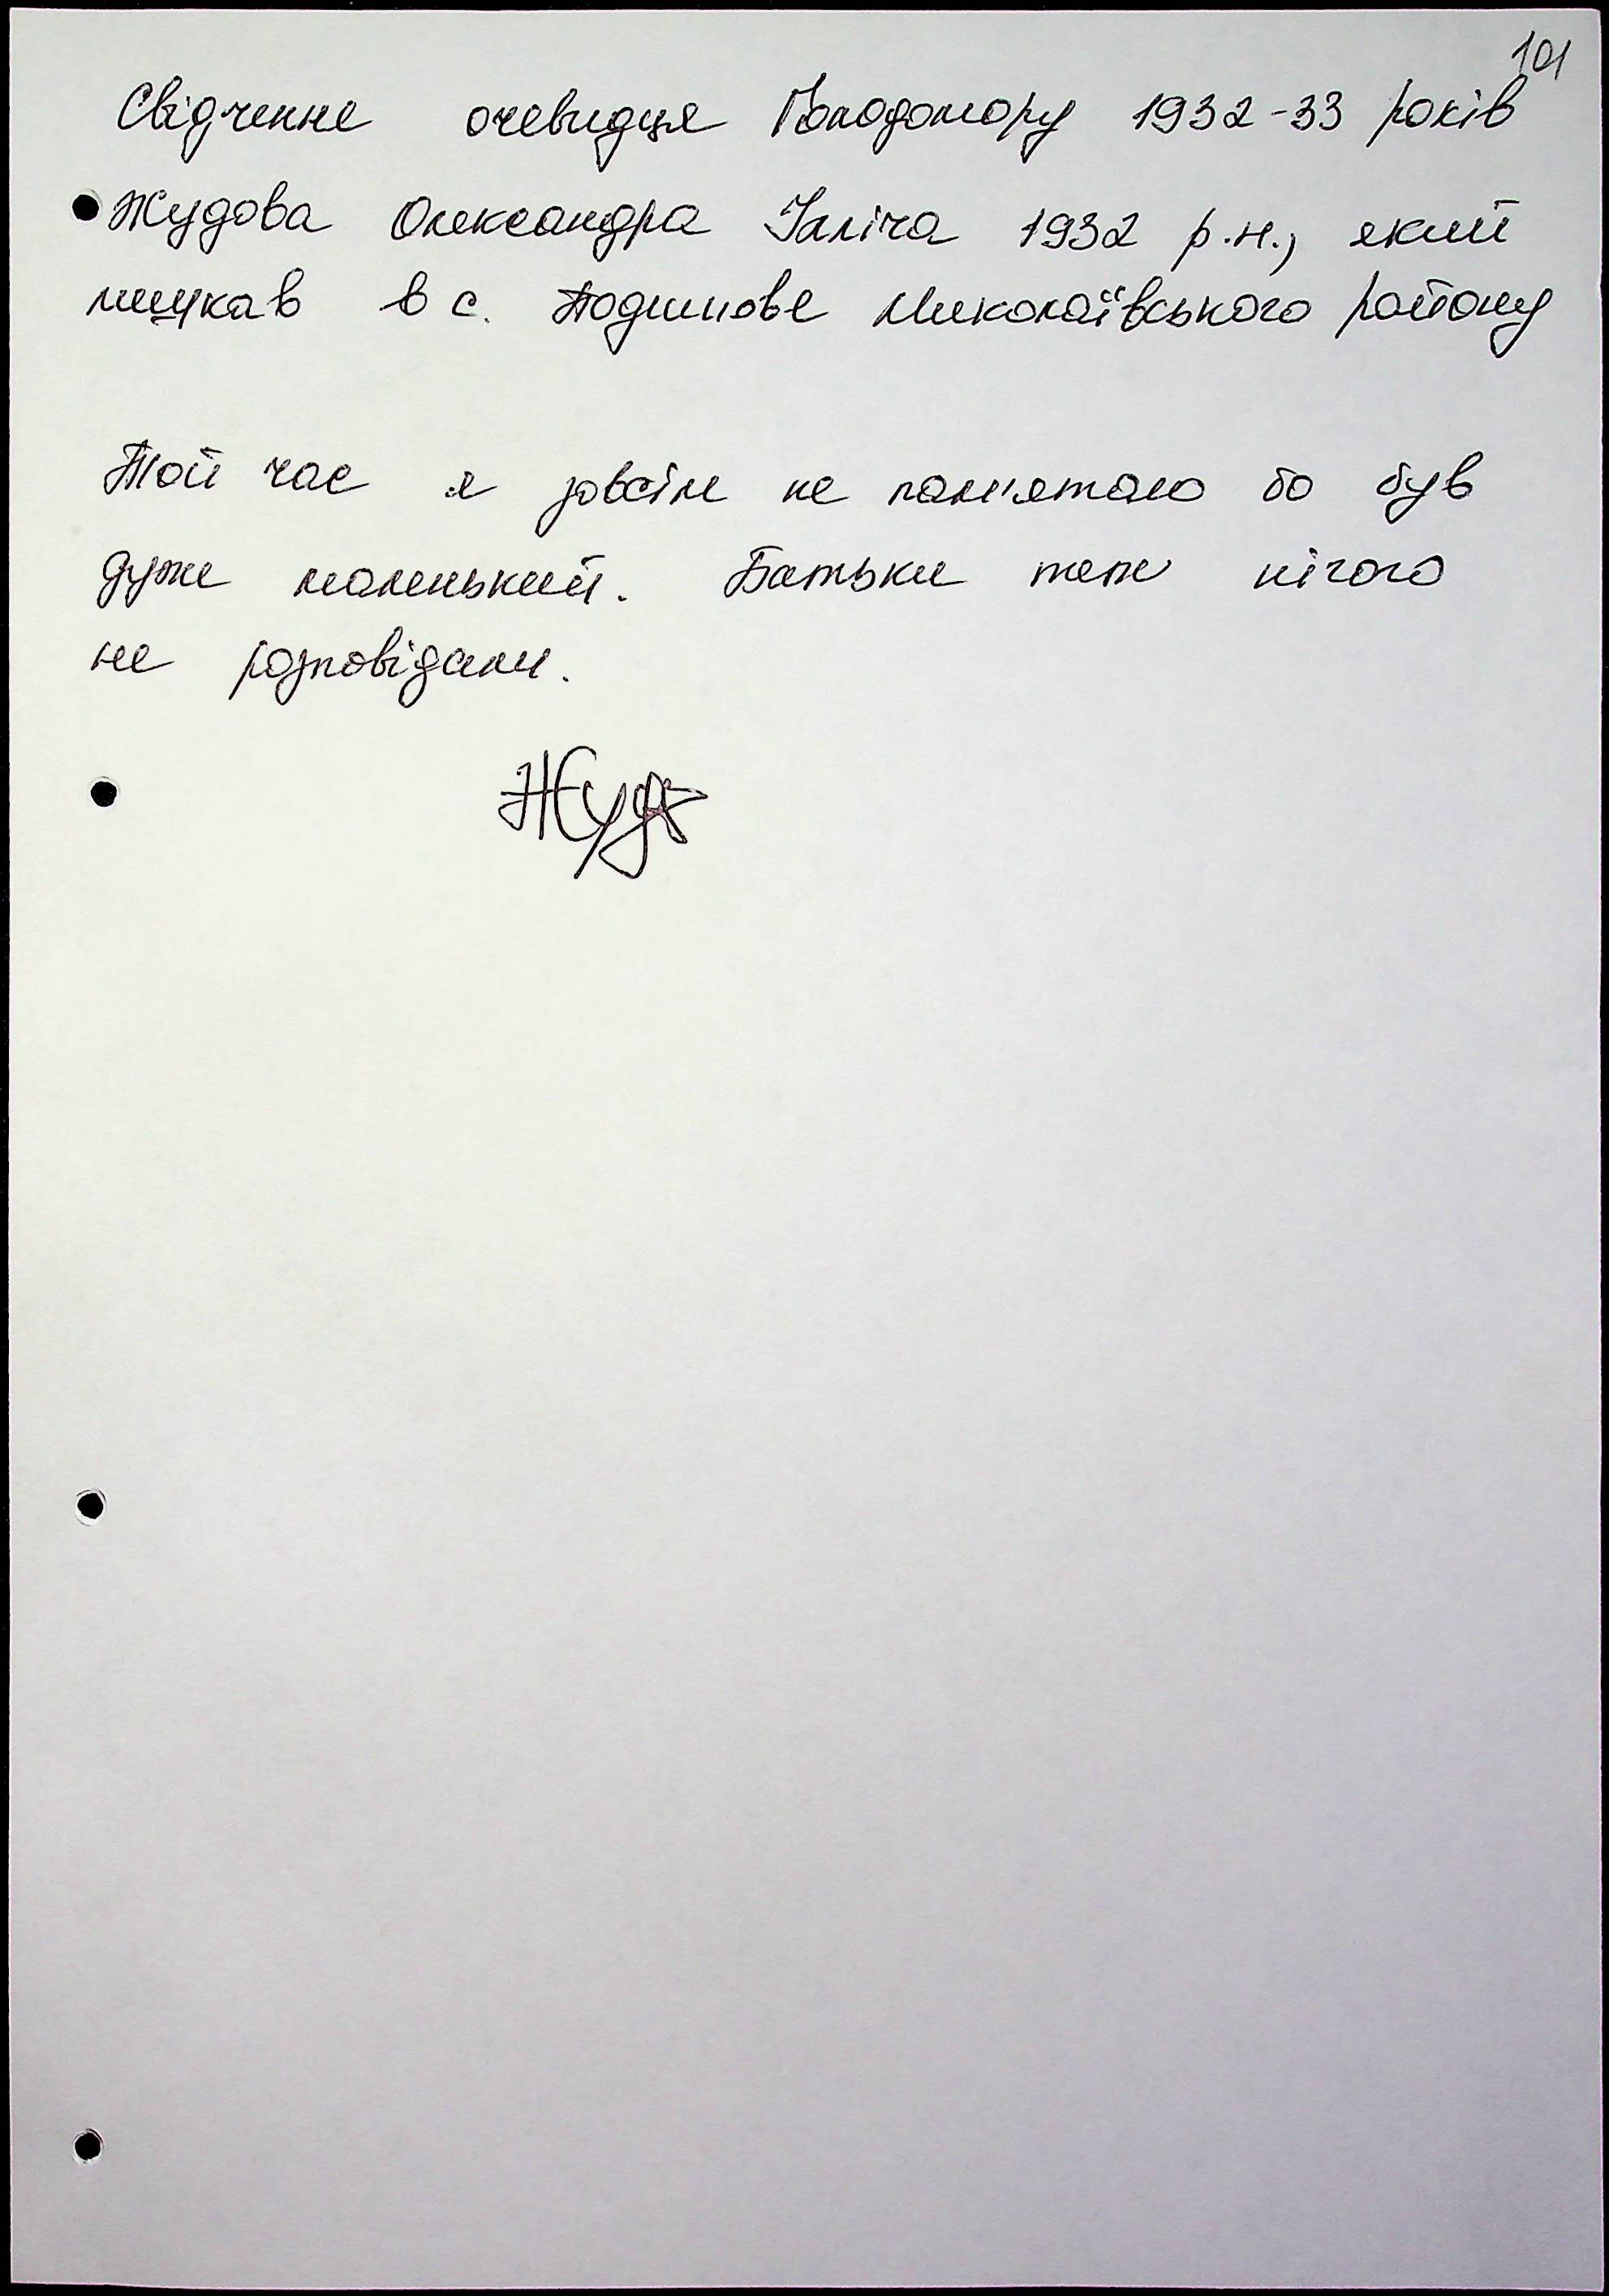 101
Свідчення очевидця Голодомору 1932-33 років
Жудова Олександра Ілліча 1932 р.н., який
мешкав в с. Подимове Миколаївського району
Той час я зовсім не пам'ятаю бо був
дуже маленький. Батьки теж нічого
не розповідали.